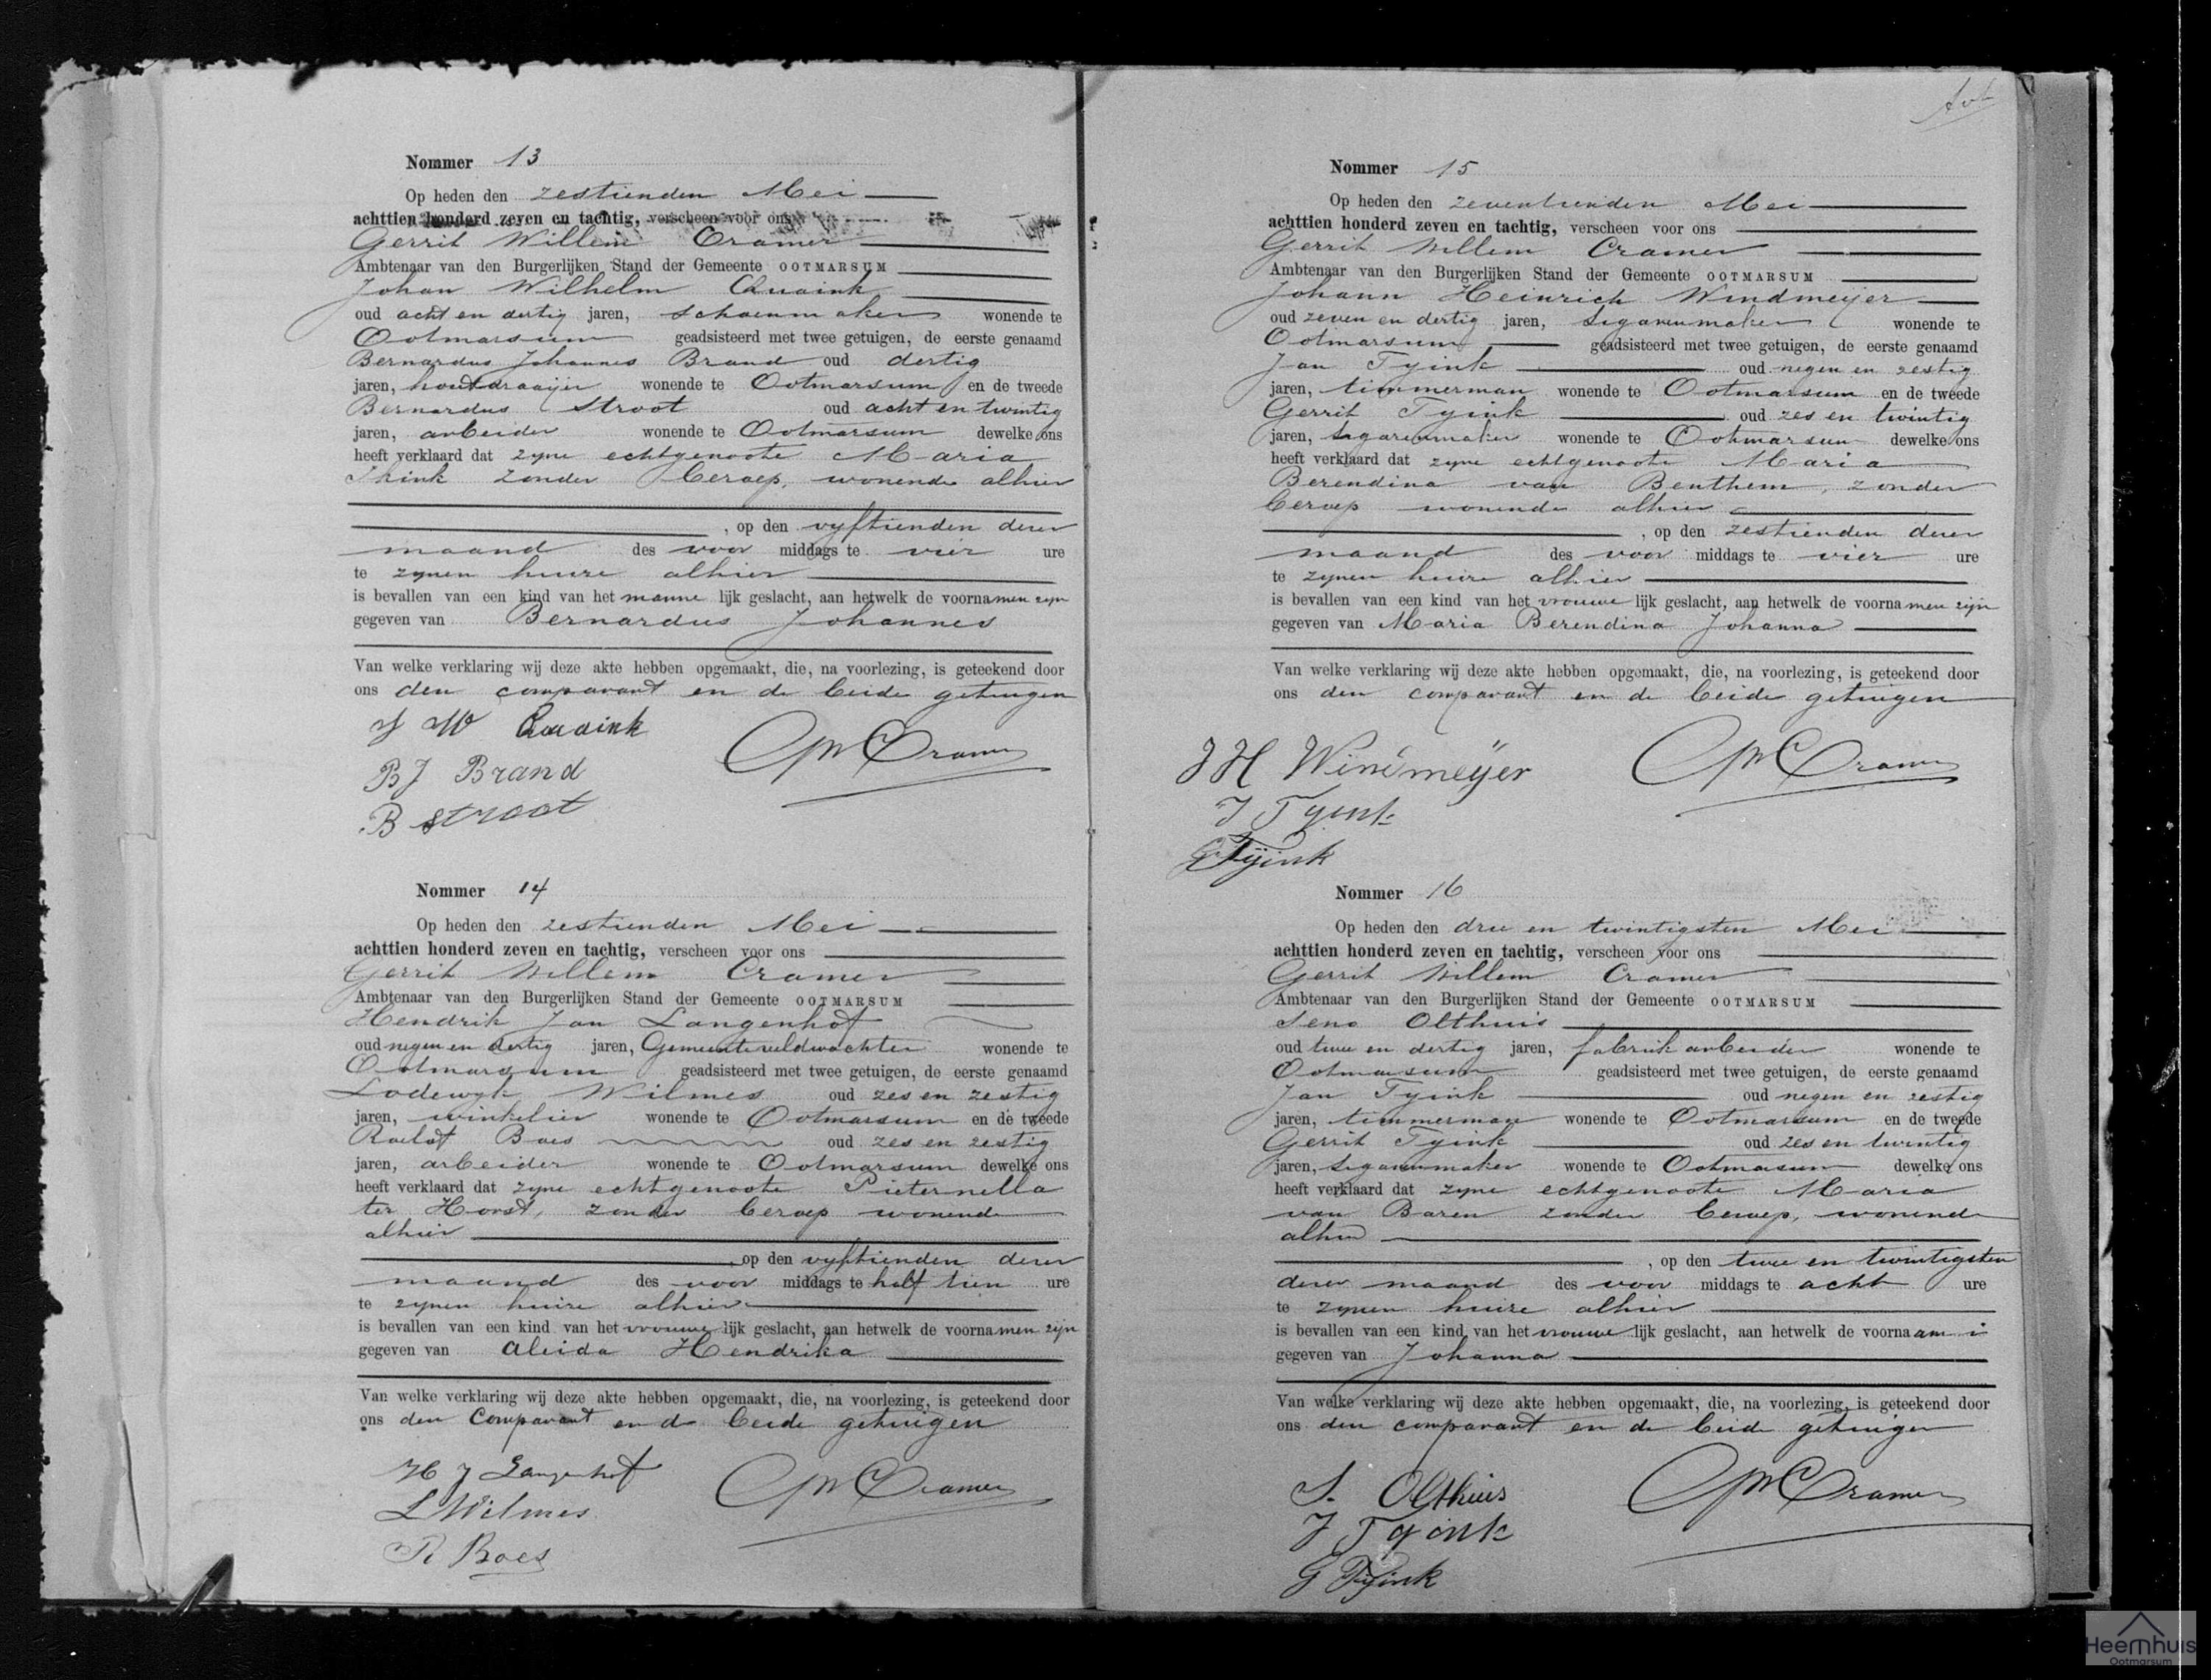 Nommer 13
Op heden den zestienden Mei
achttien honderd zeven en tachtig, verscheen voor ons
Gerrit Willem Cramer
Ambtenaar van den Burgerlijken Stand der Gemeente OOTMARSUM
Johan Wilhelm Quaink
oud acht en dertig jaren, schoenmaker wonende te
Ootmarsum geadsisteerd met twee getuigen, de eerste genaamd
Bernardus Johannes Brand oud dertig
jaren, houtdraaijer wonende te Ootmarsum en de tweede
Bernardus Stroot oud acht en twintig
jaren, arbeider wonende te Ootmarsum dewelke ons
heeft verklaard dat zyne echtgenoote Maria
zonder beroep, wonende alhier
, op den vyftienden dezer
maand des voor middags te vier ure
te zynen huize alhier
is bevallen van een kind van het manne lijk geslacht, aan hetwelk de voornamen zyn
gegeven van Bernardus Johannes
Van welke verklaring wij deze akte hebben opgemaakt, die, na voorlezing, is geteekend door
ons den comparant en de beide getuigen
J W Quaink
B J Brand
B Stroot
GW Cramer
Nommer 14
Op heden den zestienden Mei
achttien honderd zeven en tachtig, verscheen voor ons
Gerrit Willem Cramer
Ambtenaar van den Burgerlijken Stand der Gemeente OOTMARSUM
Hendrik Jan Langenhof
oud negen en dertig jaren, Gemeenteveldwachter wonende te
Ootmarsum geadsisteerd met twee getuigen, de eerste genaamd
Lodewyk Wilmes oud zes en zestig
jaren, winkelier wonende te Ootmarsum en de tweede
Roelof Boes oud zes en zestig
jaren, arbeider wonende te Ootmarsum dewelke ons
heeft verklaard dat zyne echtgenoote Pieternella
ter Horst, zonder beroep wonende
alhier
op den vyftienden dezer
maand des voor middags te half tien ure
te zynen huize alhier
is bevallen van een kind van het vrouwe lijk geslacht, aan hetwelk de voornamen zijn
gegeven van Aleida Hendrika
Van welke verklaring wij deze akte hebben opgemaakt, die, na voorlezing, is geteekend door
ons den Comparant en de beide getuigen
H J Langenhof
L Wilmes
R Boes
GW Cramer
Nommer 15
Op heden den zeventienden Mei
achttien honderd zeven en tachtig, verscheen voor ons
Gerrit Willem Cramer
Ambtenaar van den Burgerlijken Stand der Gemeente OOTMARSUM
Johann Heinrich Windmeyer
oud zeven en dertig jaren, sigarenmaker wonende te
Ootmarsum geadsisteerd met twee getuigen, de eerste genaamd
Jan Tyink oud negen en zestig
jaren, timmerman wonende te Ootmarsum en de tweede
Gerrit Tyink oud zes en twintig
jaren, sigarenmaker wonende te Ootmarsum dewelke ons
heeft verklaard dat zyne echtgenoote Maria
Berendina van Benthem, zonder
beroep wonende alhier
, op den zestienden dezer
maand des voor middags te vier ure
te zynen huize alhier
is bevallen van een kind van het vrouwe lijk geslacht, aan hetwelk de voornamen zijn
gegeven van Maria Berendina Johanna
Van welke verklaring wij deze akte hebben opgemaakt, die, na voorlezing, is geteekend door
ons den comparant en de beide getuigen
J H Windmeÿer
J Tyink
G Tÿink
GW Cramer
Nommer 16
Op heden den drie en twintigsten Mei
achttien honderd zeven en tachtig, verscheen voor ons
Gerrit Willem Cramer
Ambtenaar van den Burgerlijken Stand der Gemeente OOTMARSUM
Seno Olthuis
oud twee en dertig jaren, fabriekarbeider wonende te
Ootmarsum geadsisteerd met twee getuigen, de eerste genaamd
Jan Tyink oud negen en zestig
jaren, timmerman wonende te Ootmarsum en de tweede
Gerrit Tyink oud zes en twintig
jaren, sigarenmaker wonende te Ootmarsum dewelke ons
heeft verklaard dat zyne echtgenoote Maria
van Baren zonder beroep, wonende
alhier
, op den twee en twintigsten
dezer maand des voor middags te acht ure
te zynen huize alhier
is bevallen van een kind van het vrouwe lijk geslacht, aan hetwelk de voornaam is
gegeven van Johanna
Van welke verklaring wij deze akte hebben opgemaakt, die, na voorlezing, is geteekend door
ons den comparant en de beide getuigen
S. Olthuis
J Tyink
G Tyink
GW Cramer
Heemhuis
Ootmarsum